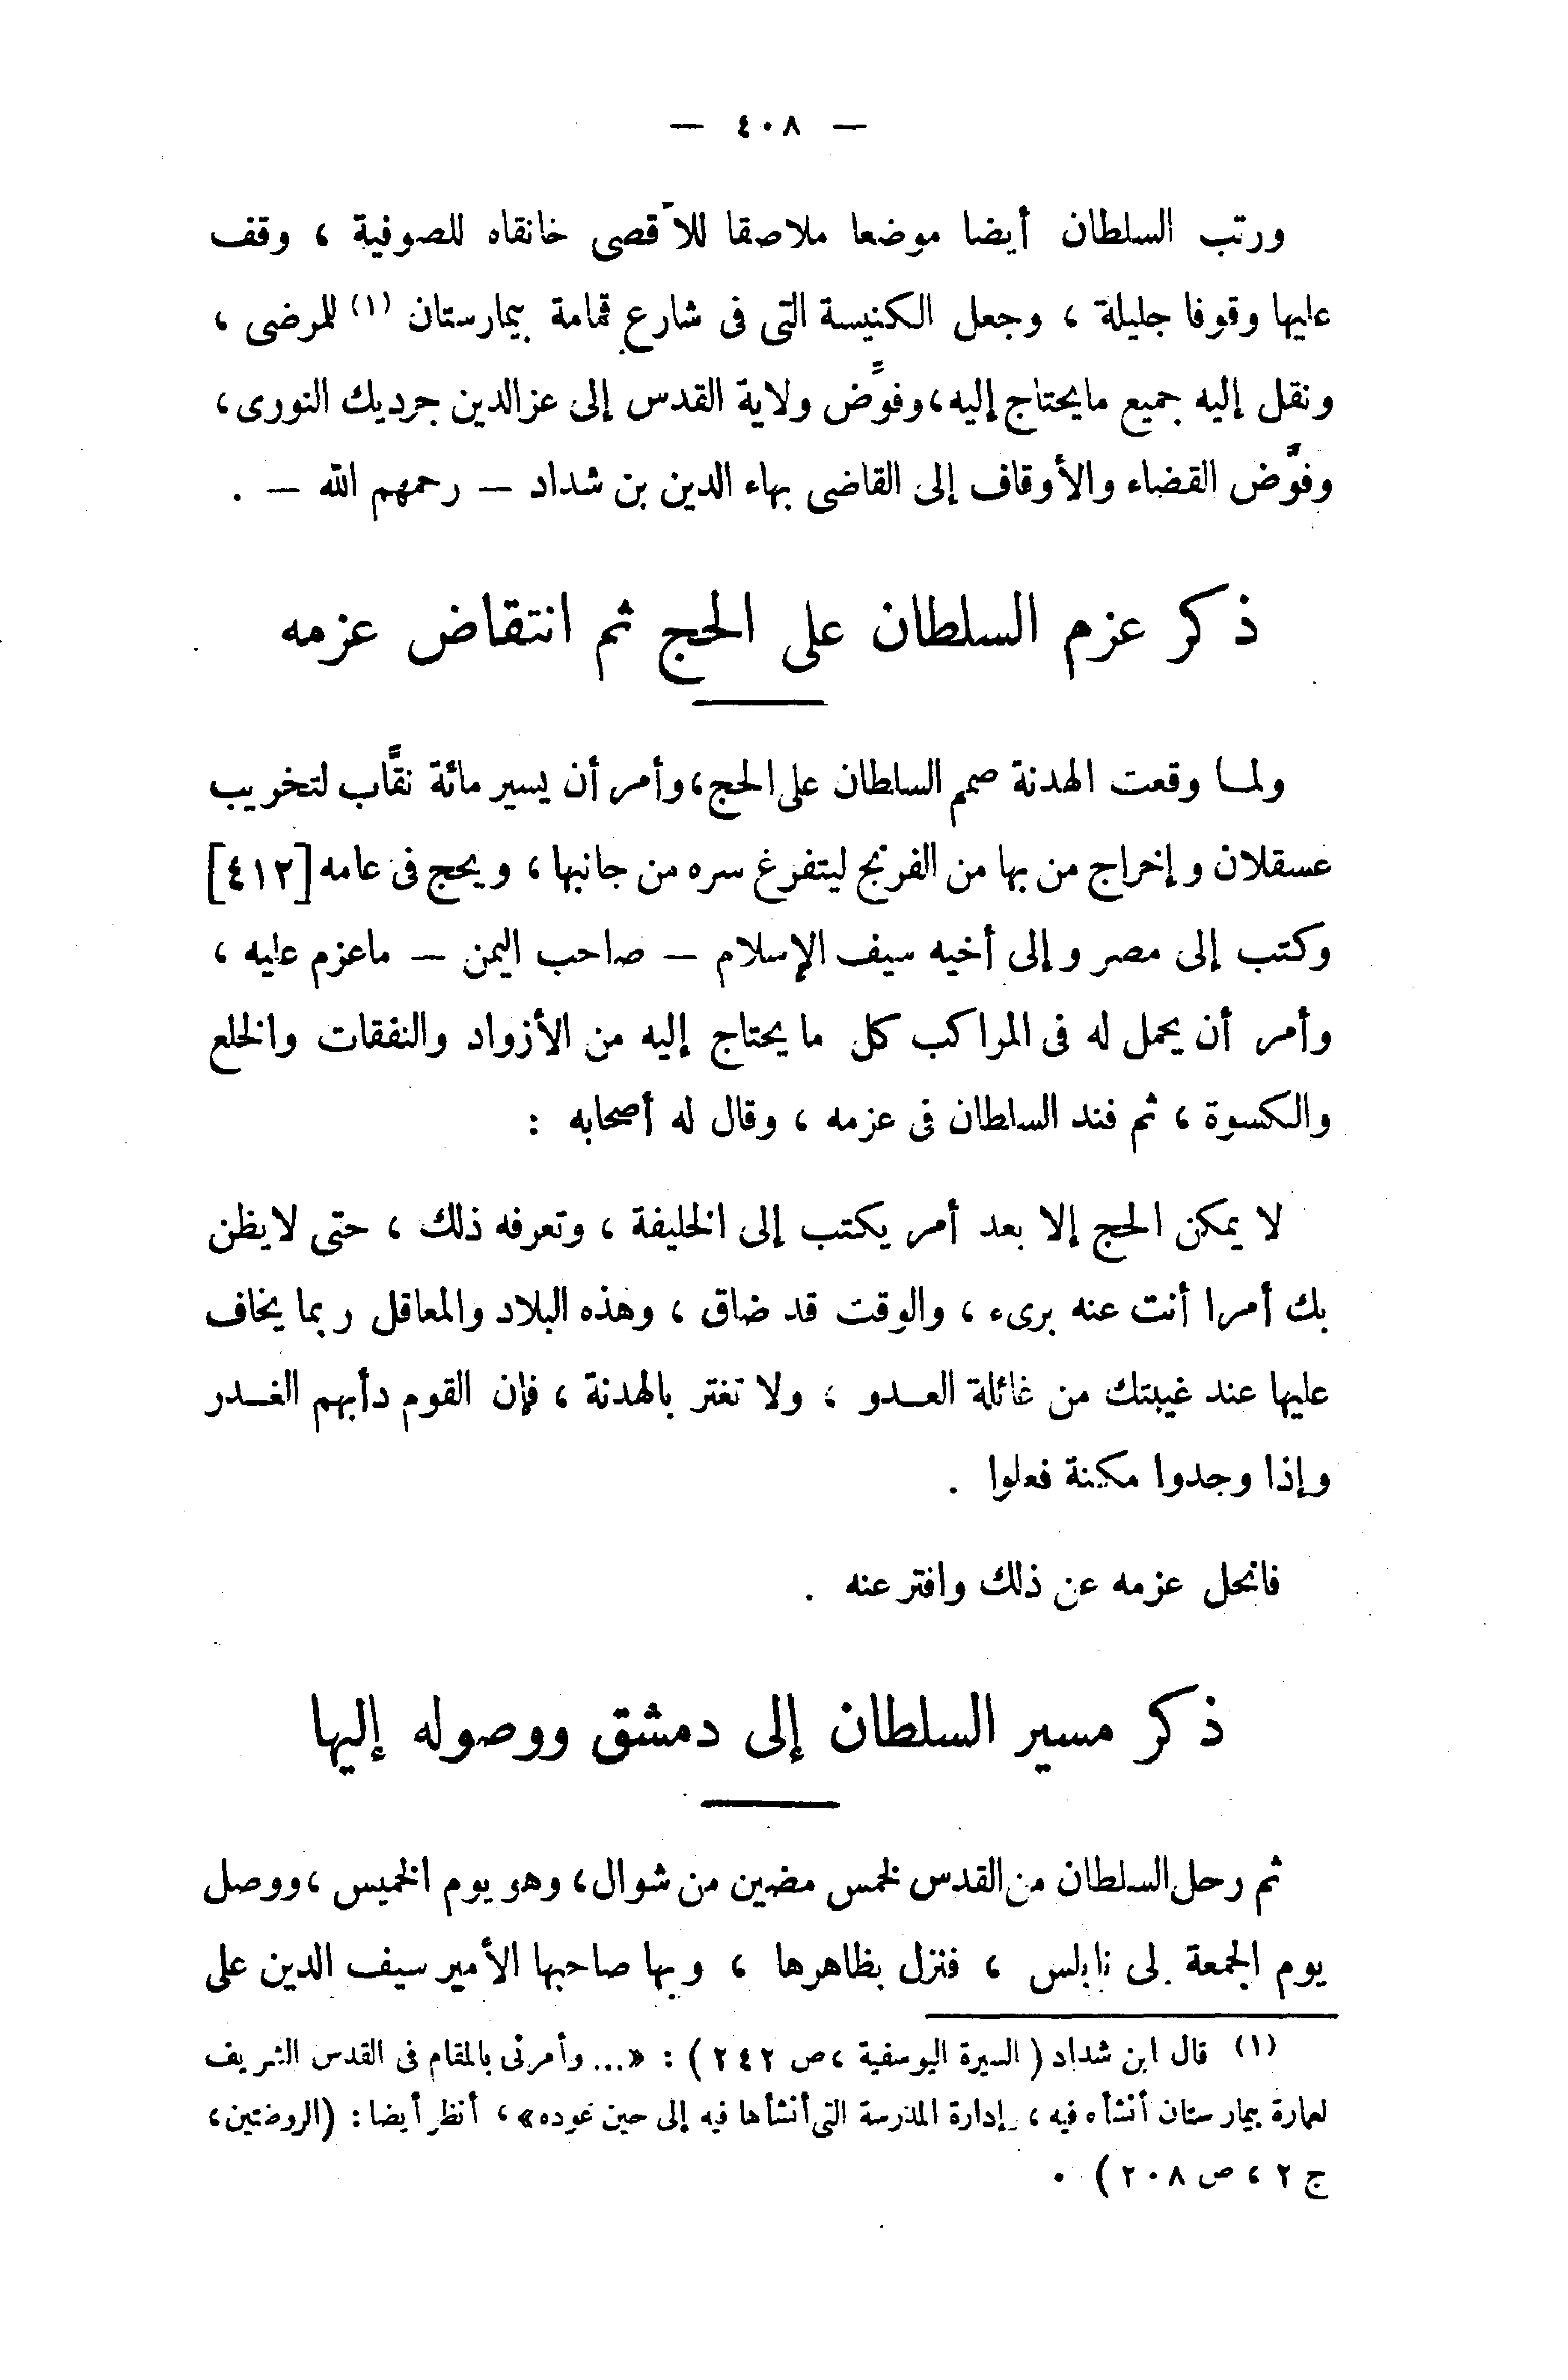 — ٤٠٨ —
ورتب السلطان أيضا موضعا ملاصقا للأقصى خانقاه للصوفية ، وقف
عليها وقوفا جليلة ، وجعل الكنيسة التى فى شارع قمامة بيمارستان (١) للمرضى ،
ونقل إليه جميع مايحتاج إليه، وفوَّض ولاية القدس إلى عز الدين جرديك النورى ،
وفوَّض القضاء والأوقاف إلى القاضى بهاء الدين بن شداد — رحمهم الله — .
ذكر عزم السلطان على الحج ثم انتقاض عزمه
ولما وقعت الهدنة صمم السلطان على الحج، وأمر أن يسير مائة نقَّاب لتخريب
عسقلان وإخراج من بها من الفرنج ليتفرغ سره من جانبها ، ويحج فى عامه [٤١٢]
وكتب إلى مصر وإلى أخيه سيف الإسلام — صاحب اليمن — ماعزم عليه ،
وأمر أن يحمل له فى المراكب كل ما يحتاج إليه من الأزواد والنفقات والخلع
والكسوة ، ثم فند السلطان فى عزمه ، وقال له أصحابه :
لا يمكن الحج إلا بعد أمر يكتب إلى الخليفة ، وتعرفه ذلك ، حتى لا يظن
بك أمرا أنت عنه برىء ، والوقت قد ضاق ، وهذه البلاد والمعاقل ربما يخاف
عليها عند غيبتك من غائلة العـدو ، ولا تغتر بالهدنة ، فإن القوم دأبهم الغـدر
وإذا وجدوا مكنة فعلوا .
فانحل عزمه عن ذلك وافتر عنه .
ذكر مسير السلطان إلى دمشق ووصوله إليها
ثم رحل السلطان من القدس لخمس مضين من شوال، وهو يوم الخميس ، ووصل
يوم الجمعة لى نابلس ، فنزل بظاهرها ، وبها صاحبها الأمير سيف الدين على
(١) قال ابن شداد ( السيرة اليوسفية ، ص ٢٤٢ ) : «... وأمرنى بالمقام فى القدس الشريف
لعمارة بيمارستان أنشأه فيه ، وإدارة المدرسة التى أنشأها فيه إلى حين عوده» ، أنظر أيضا : (الروضتين ،
ج ٢ ، ص ٢٠٨ ) .